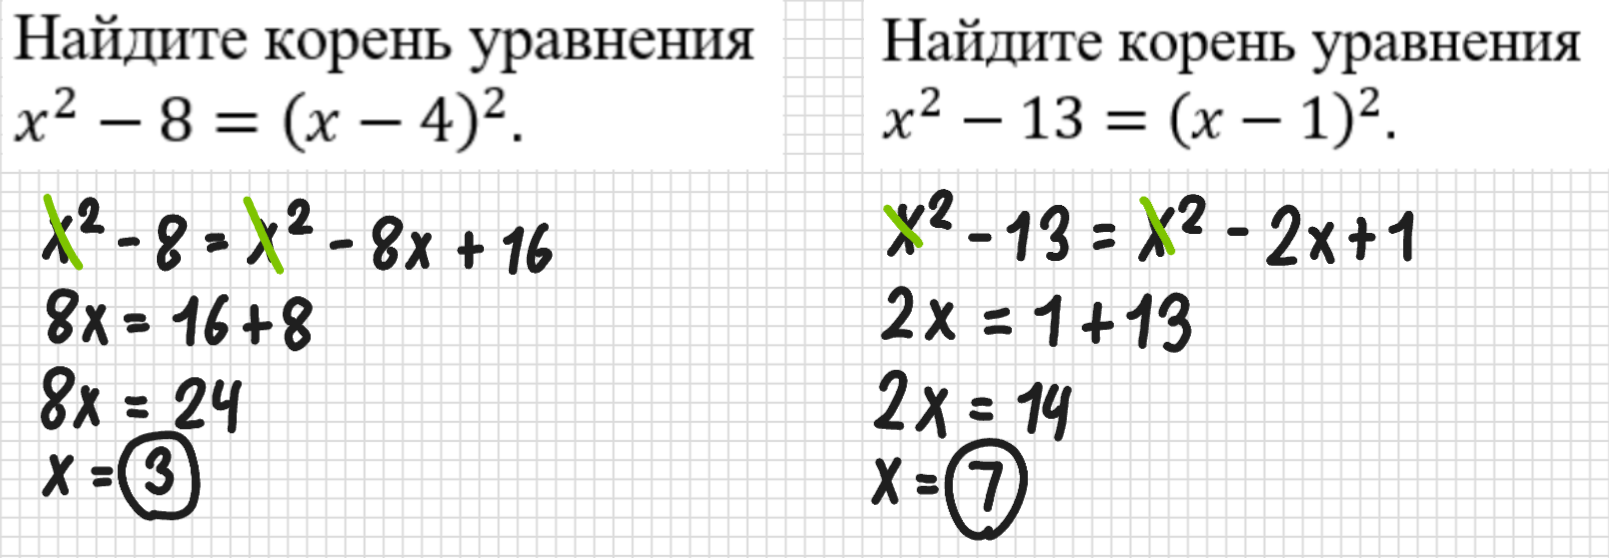 Найдите корень уравнения
x² − 8 = (x − 4)².
x² - 8 = x² - 8x + 16
8x = 16 + 8
8x = 24
x = 3
Найдите корень уравнения
x² − 13 = (x − 1)².
x² - 13 = x² - 2x + 1
2x = 1 + 13
2x = 14
x = 7